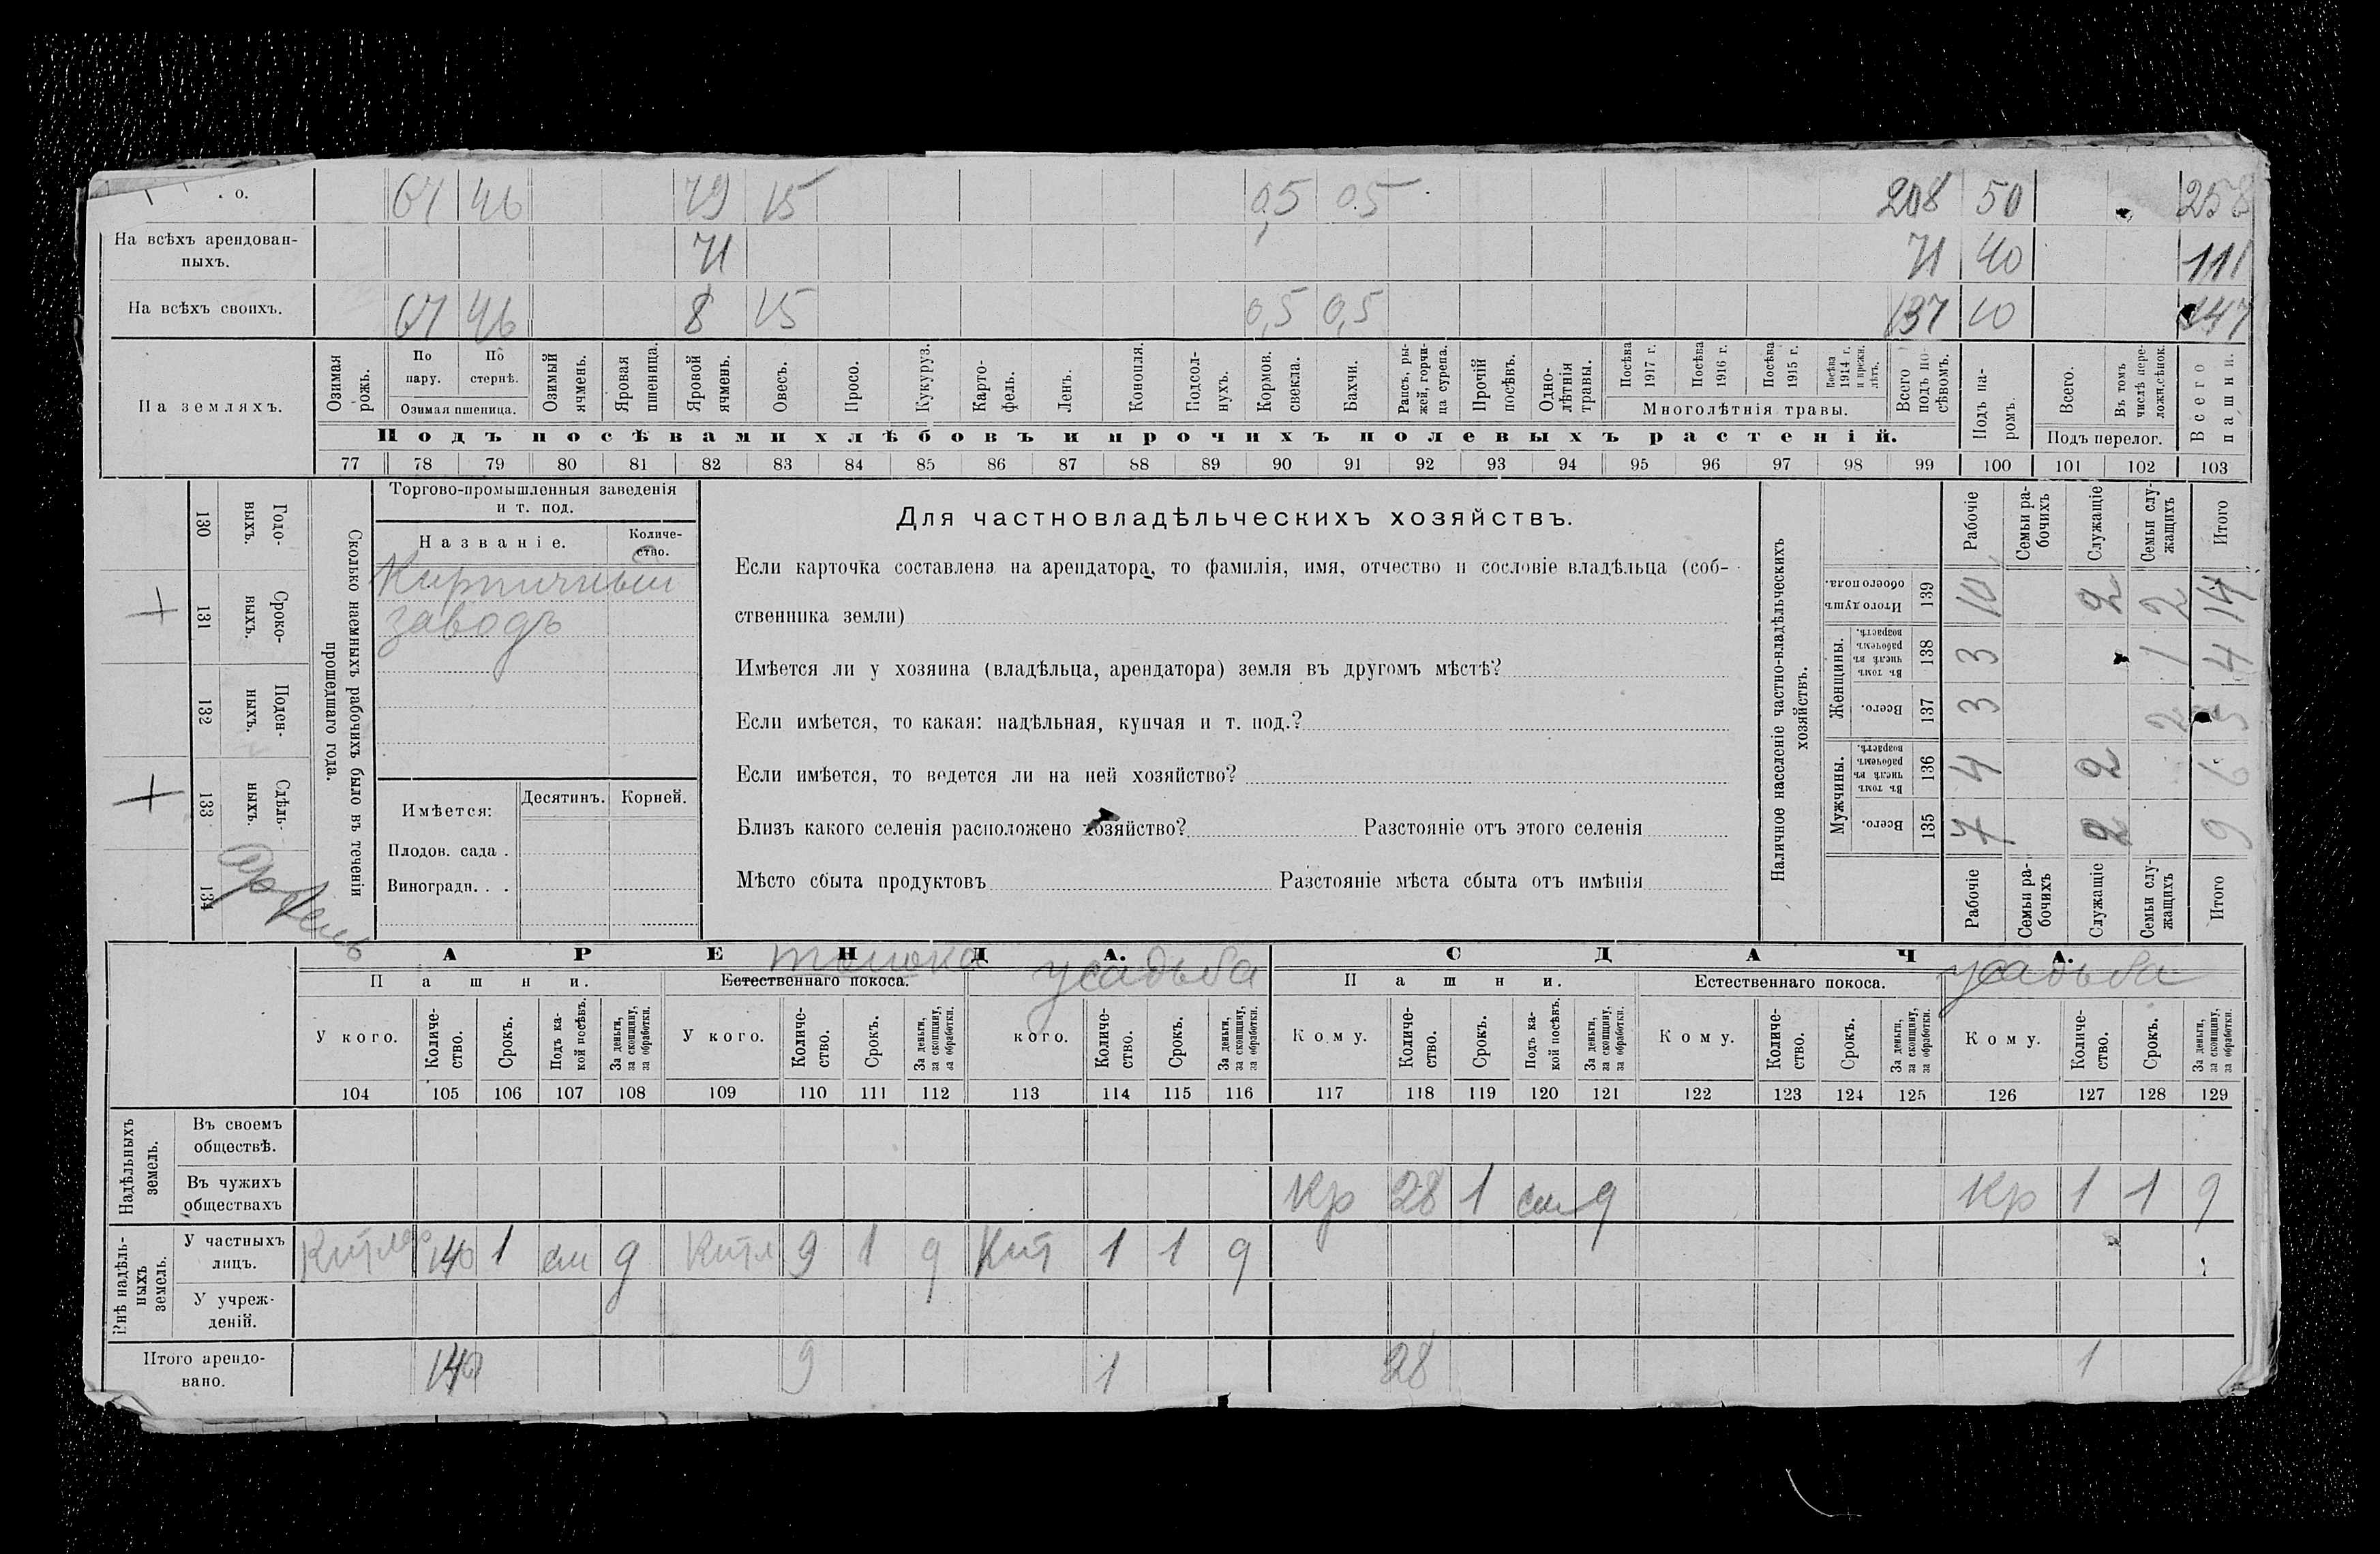 . о. 67 46 79 15 0,5 0.5 208 50 258
На всѣхъ арендован-
ныхъ. 71 71 40 111
На всѣхъ своихъ. 67 46 8 15 0,5 0,5 137 10 147
На земляхъ.
Озимая рожь.
По пару.
По стернѣ.
Озимая пшеница.
Озимый ячмень.
Яровая пшеница.
Яровой ячмень.
Овесъ.
Просо.
Кукуруз.
Карто-
фель.
Ленъ.
Конопля.
Подсол-
нухъ.
Кормов. свекла.
Бахчи.
Рапсъ, ры-
жей, горчи-
ца сурепа.
Прочій посѣвъ.
Одно-
лѣтнія травы.
Посѣва 1917 г.
Посѣва 1916 г.
Посѣва 1915 г.
Посѣва 1914 г. и прежн. лѣтъ.
Многолѣтнія травы.
Всего подъ по-
сѣвомъ.
Подъ па-
ромъ.
Всего.
Въ томъ числѣ пере-
ложн. сѣнок.
Подъ перелог.
Всего пашни.
Подъ посѣвами хлѣбовъ и прочихъ полевыхъ растеній.
77 78 79 80 81 82 83 84 85 86 87 88 89 90 91 92 93 94 95 96 97 98 99 100 101 102 103
130 Годо-
выхъ.
131 Сроко-
выхъ.
132 Поден-
ныхъ.
133 Сдѣль-
ныхъ.
134 артель
Сколько наемныхъ рабочихъ было въ теченіи
прошедшаго года.
Торгово-промышленныя заведенія
и т. под.
Названіе.
Количе-
ство.
Кирпичный
заводъ
Имѣется: Десятинъ. Корней.
Плодов. сада .
Виноградн. . .
Для частновладѣльческихъ хозяйствъ.
Если карточка составлена на арендатора, то фамилія, имя, отчество и сословіе владѣльца (соб-
ственника земли)
Имѣется ли у хозяина (владѣльца, арендатора) земля въ другомъ мѣстѣ?
Если имѣется, то какая: надѣльная, купчая и т. под.?
Если имѣется, то ведется ли на ней хозяйство?
Близъ какого селенія расположено хозяйство? Разстояніе отъ этого селенія
Мѣсто сбыта продуктовъ Разстояніе мѣста сбыта отъ имѣнія
Наличное населеніе частно-владѣльческихъ
хозяйствъ.
Рабочіе
Семьи ра-
бочихъ
Служащіе
Семьи слу-
жащихъ
Итого
Итого душъ обоего пола. 139 10 2 2 14
Женщины.
Въ томъ числѣ въ рабочемъ возрастѣ. 138 3 1 4
Всего. 137 3 2 5
Мужчины.
Въ томъ числѣ въ рабочемъ возрастѣ. 136 4 2 6
Всего. 135 7 2 9
Рабочіе
Семьи ра-
бочихъ
Служащіе
Семьи слу-
жащихъ
Итого
АРЕНДА. СДАЧА.
Пашни. Естественнаго покоса. толока усадьба Пашни. Естественнаго покоса. усадьба
У кого. Количе-
ство. Срокъ. Подъ ка-
кой посѣвъ. За деньги, за скопщину, за обработки.
У кого. Количе-
ство. Срокъ. За деньги, за скопщину, за обработки.
кого. Количе-
ство. Срокъ. За деньги, за скопщину, за обработки.
Кому. Количе-
ство. Срокъ. Подъ ка-
кой посѣвъ. За деньги, за скопщину, за обработки.
Кому. Количе-
ство. Срокъ. За деньги, за скопщину, за обработки.
Кому. Количе-
ство. Срокъ. За деньги, за скопщину, за обработки.
104 105 106 107 108 109 110 111 112 113 114 115 116 117 118 119 120 121 122 123 124 125 126 127 128 129
Надѣльныхъ земель.
Въ своемъ
обществѣ.
Въ чужихъ
обществахъ Кр 28 1 см д Кр 1 1 д
Внѣ надѣль-
ныхъ земель.
У частныхъ
лицъ. 140 1 см д Китл 9 1 д Кит 1 1 д
У учреж-
деній.
Итого арендо-
вано. 140 9 1 28 1